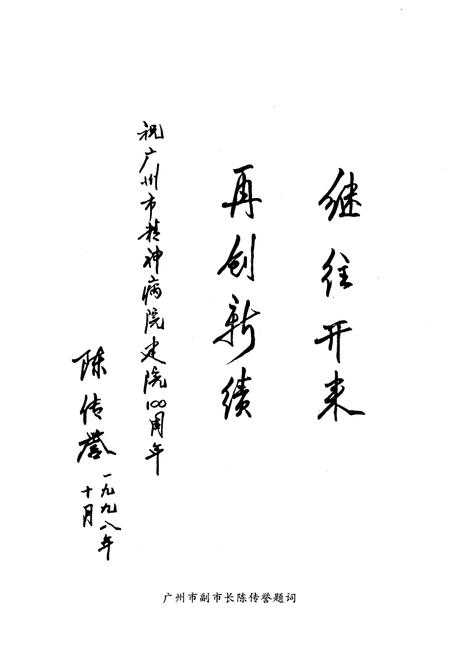 继往开来
再创新绩
祝广州市精神病院建院100周年
陈传誉
一九九八年
十月
广州市副市长陈传誉题词